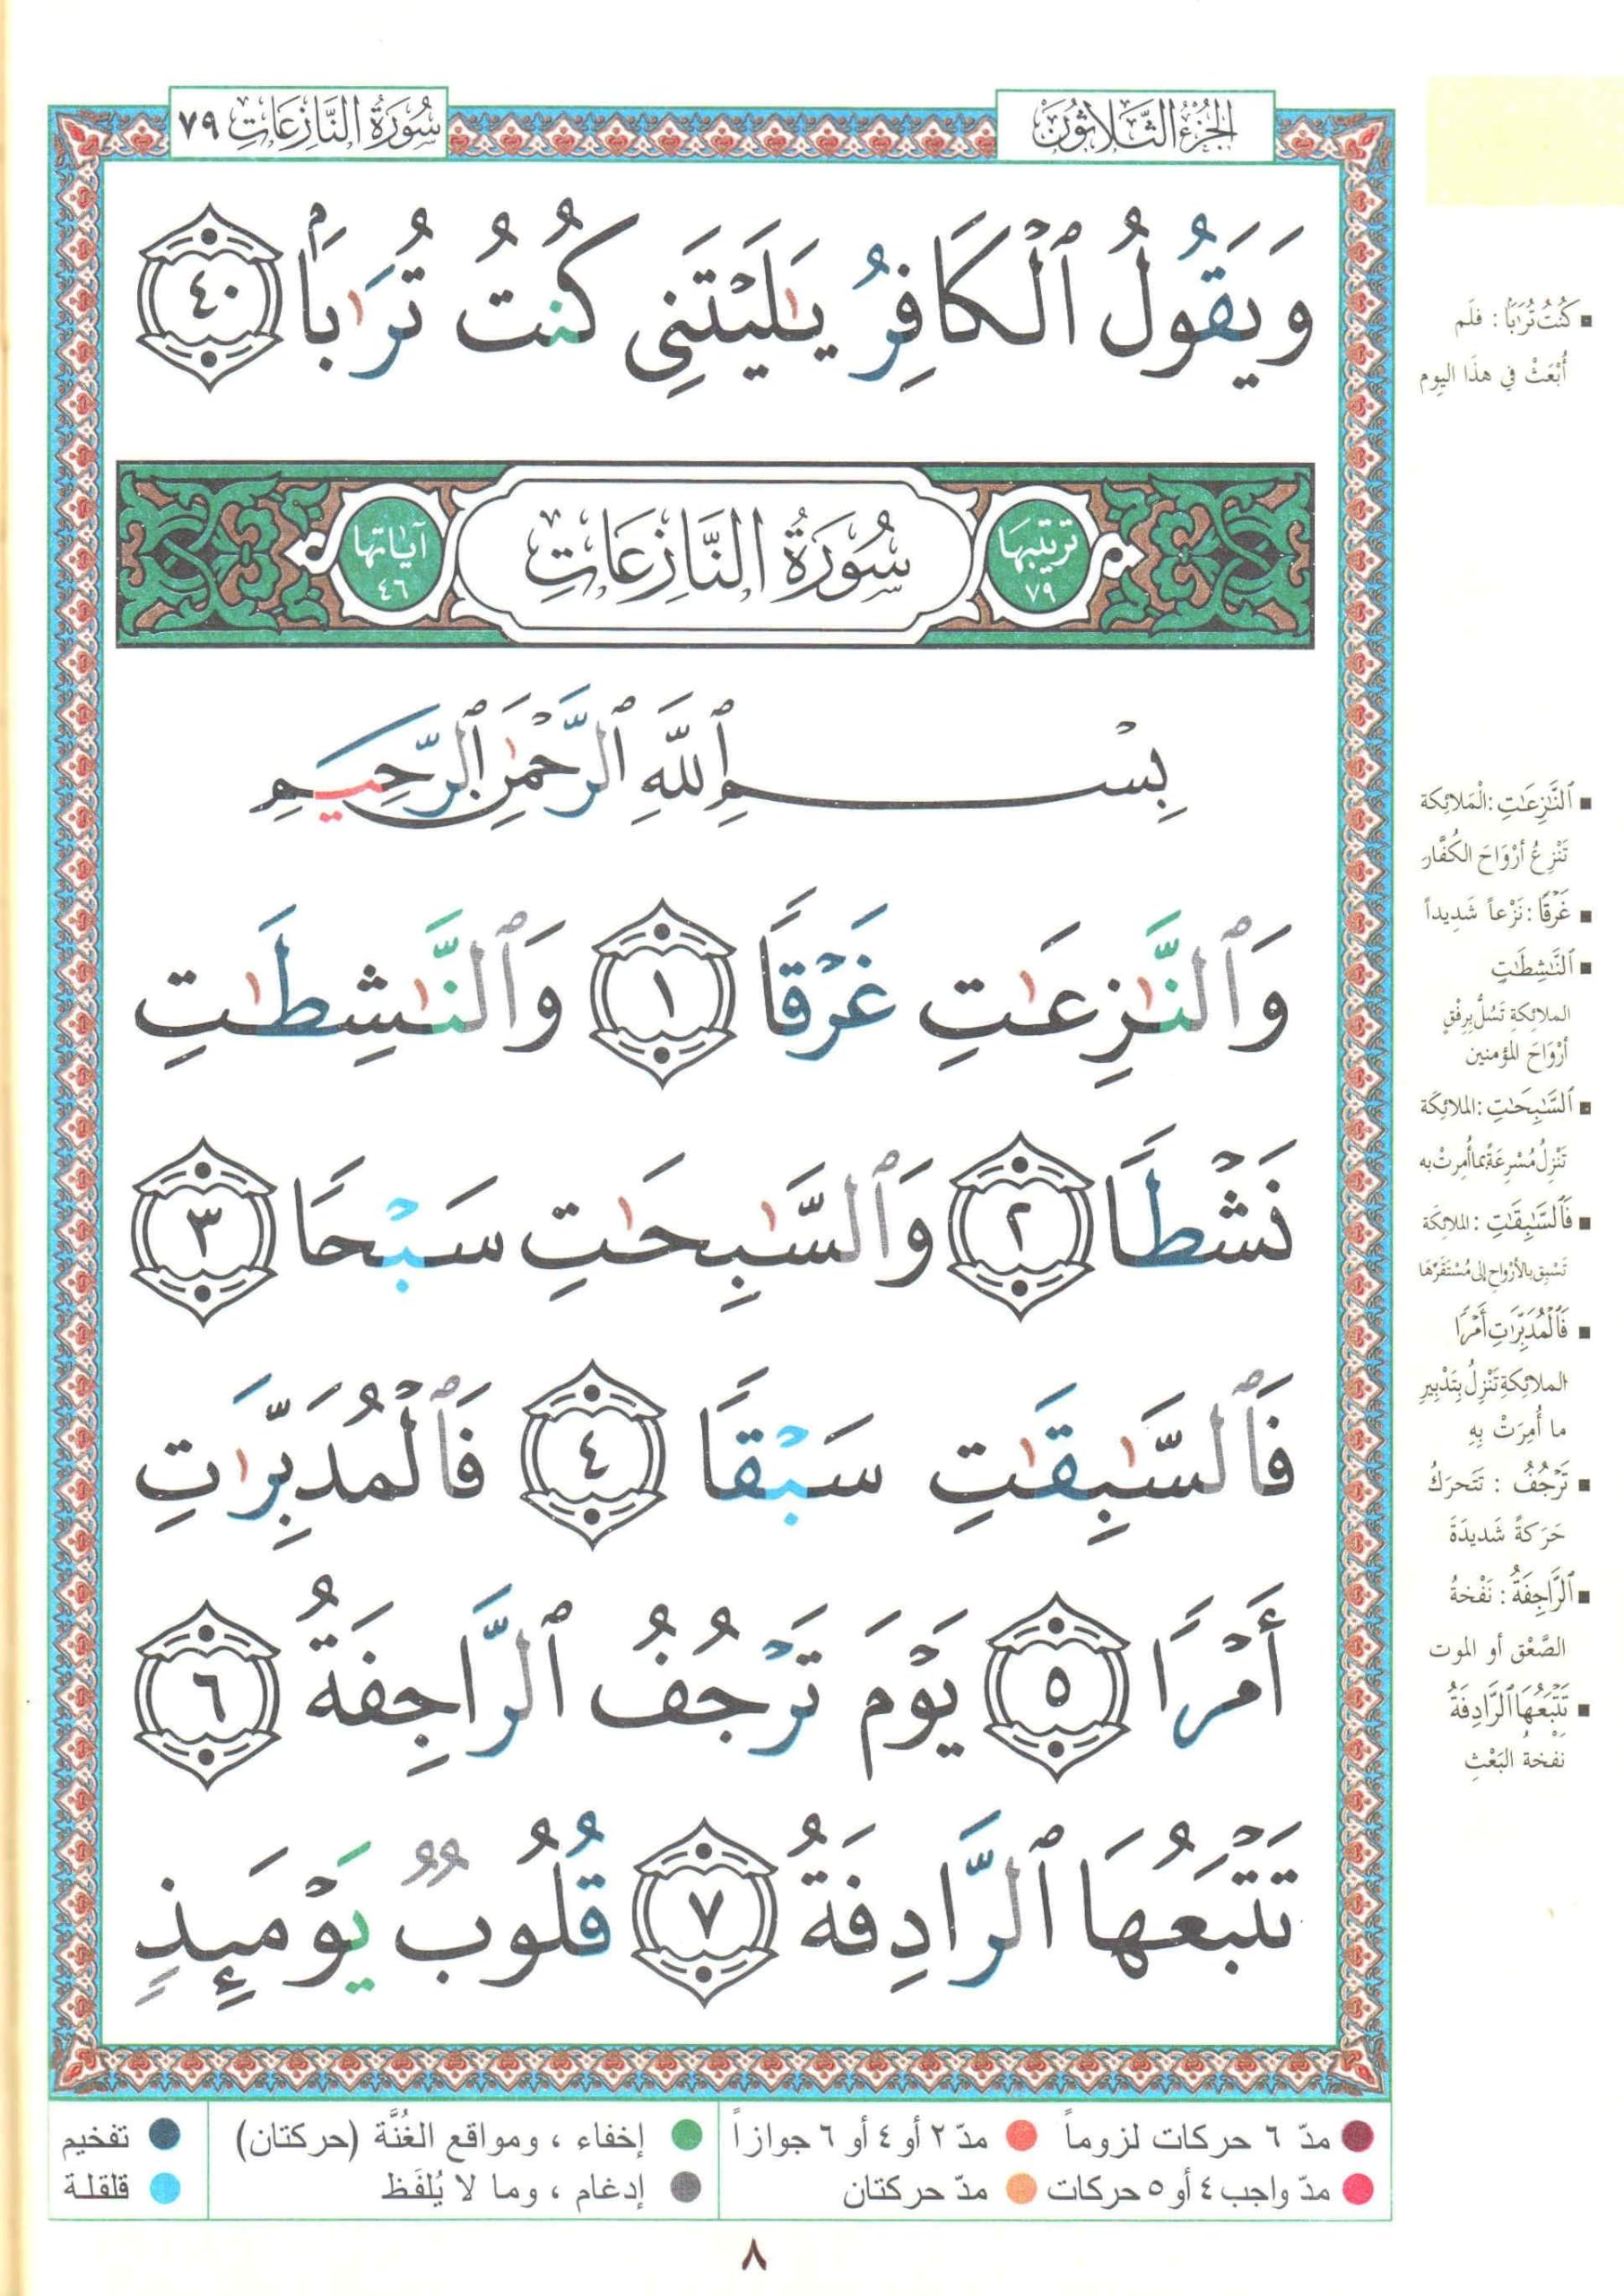 الجزء الثلاثون
سورة النازعات ٧٩
وَيَقُولُ ٱلْكَافِرُ يَـٰلَيْتَنِى كُنتُ تُرَٰبًۢا ٤٠
ترتيبها ٧٩
سُورَةُ النَّازِعَاتِ
آياتها ٤٦
بِسْمِ ٱللَّهِ ٱلرَّحْمَـٰنِ ٱلرَّحِيمِ
وَٱلنَّـٰزِعَـٰتِ غَرْقًا ١ وَٱلنَّـٰشِطَـٰتِ
نَشْطًا ٢ وَٱلسَّـٰبِحَـٰتِ سَبْحًا ٣
فَٱلسَّـٰبِقَـٰتِ سَبْقًا ٤ فَٱلْمُدَبِّرَٰتِ
أَمْرًا ٥ يَوْمَ تَرْجُفُ ٱلرَّاجِفَةُ ٦
تَتْبَعُهَا ٱلرَّادِفَةُ ٧ قُلُوبٌ يَوْمَئِذٍ
كُنتُ تُرَٰبًا : فلَم
أُبْعَثْ في هذَا اليوم
ٱلنَّـٰزِعَـٰتِ : الْمَلائِكة
تَنْزِعُ أرْوَاحَ الكُفَّار
غَرْقًا : نَزْعاً شَدِيداً
ٱلنَّـٰشِطَـٰتِ
الملائِكةِ تَسُلُّ بِرِفْقٍ
أرْوَاحَ المؤمنين
ٱلسَّـٰبِحَـٰتِ : الملائِكَة
تَنْزِلُ مُسْرِعَةً بما أُمِرتْ به
فَٱلسَّـٰبِقَـٰتِ : الملائِكَة
تَسْبِق بالأرْواحِ إلى مُسْتَقَرِّهَا
فَٱلْمُدَبِّرَٰتِ أَمْرًا
الملائِكةِ تَنْزِلُ بِتَدْبِيرِ
ما أُمِرَتْ بِهِ
تَرْجُفُ : تَتَحرَكُ
حَرَكةً شَديدَةَ
ٱلرَّاجِفَةُ : نَفْخةُ
الصَّعْق أو الموت
تَتْبَعُهَا ٱلرَّادِفَةُ
نفْخةُ البَعْثِ
مدّ ٦ حركات لزوماً
مدّ ٢ أو ٤ أو ٦ جوازاً
إخفاء ، ومواقع الغُنَّة (حركتان)
تفخيم
مدّ واجب ٤ أو ٥ حركات
مدّ حركتان
إدغام ، وما لا يُلفَظ
قلقلة
٨